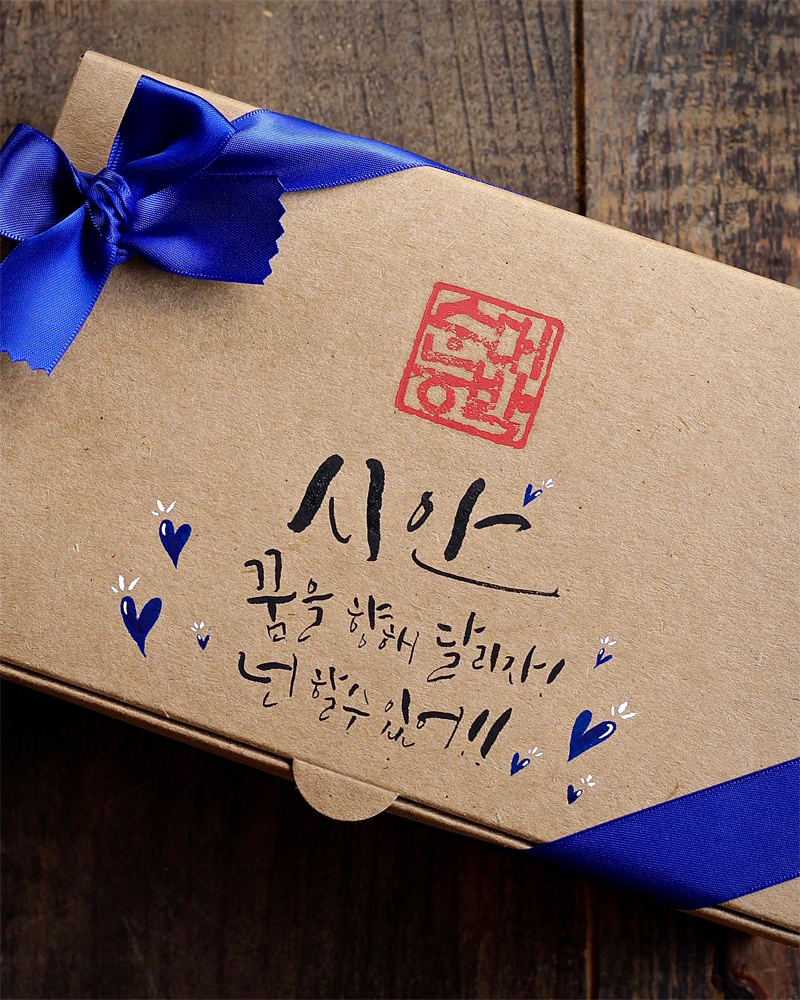 시안
꿈을 향해 달리자!
넌 할 수 있어!!